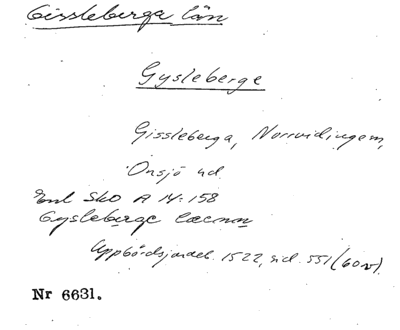 Gissleberga län
Gysleberge
Gissleberga, Norrvidingem,
Onsjö hd.
Enl SkO A IV: 158
Gysleberge lænnn
Uppbördsjordeb. 1522, sid. 551 (60v).
Nr 6631.